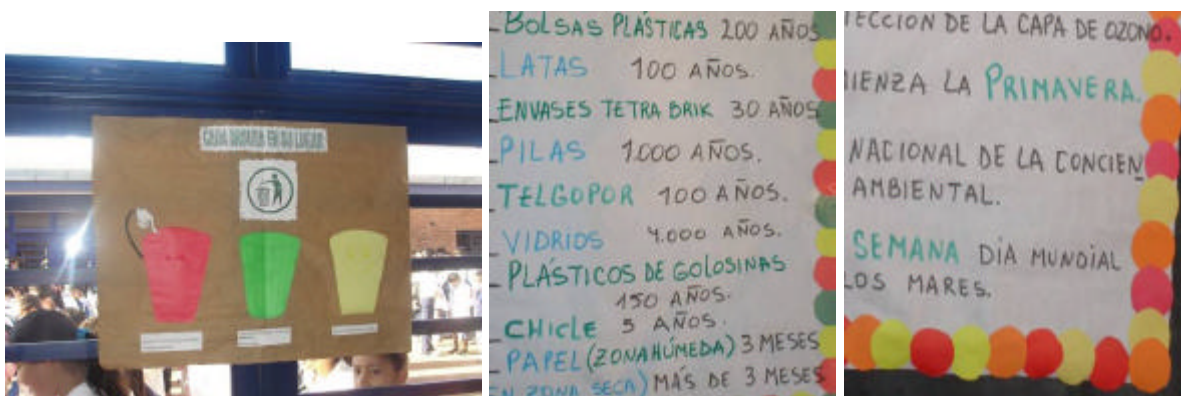 CADA BASURA EN SU LUGAR
BOLSAS PLÁSTICAS 200 AÑOS
LATAS 100 AÑOS.
ENVASES TETRA BRIK 30 AÑOS
PILAS 1.000 AÑOS.
TELGOPOR 100 AÑOS.
VIDRIOS 4.000 AÑOS.
PLÁSTICOS DE GOLOSINAS
150 AÑOS.
CHICLE 5 AÑOS.
PAPEL (ZONA HÚMEDA) 3 MESES
EN ZONA SECA) MÁS DE 3 MESES
TECCION DE LA CAPA DE OZONO.
MIENZA LA PRIMAVERA.
NACIONAL DE LA CONCIEN
AMBIENTAL.
SEMANA DÍA MUNDIAL
LOS MARES.